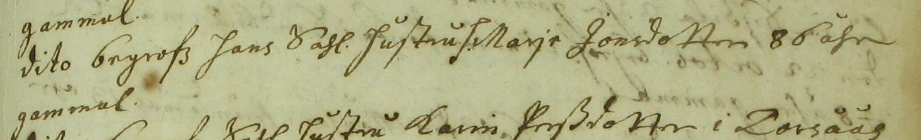 gammal.
dito begrofs Jans Sahl. Hustru H. Marje Jonsdotter 86 åhr
gammal.
Sal Hustru Karin Persdotter i Torsåås